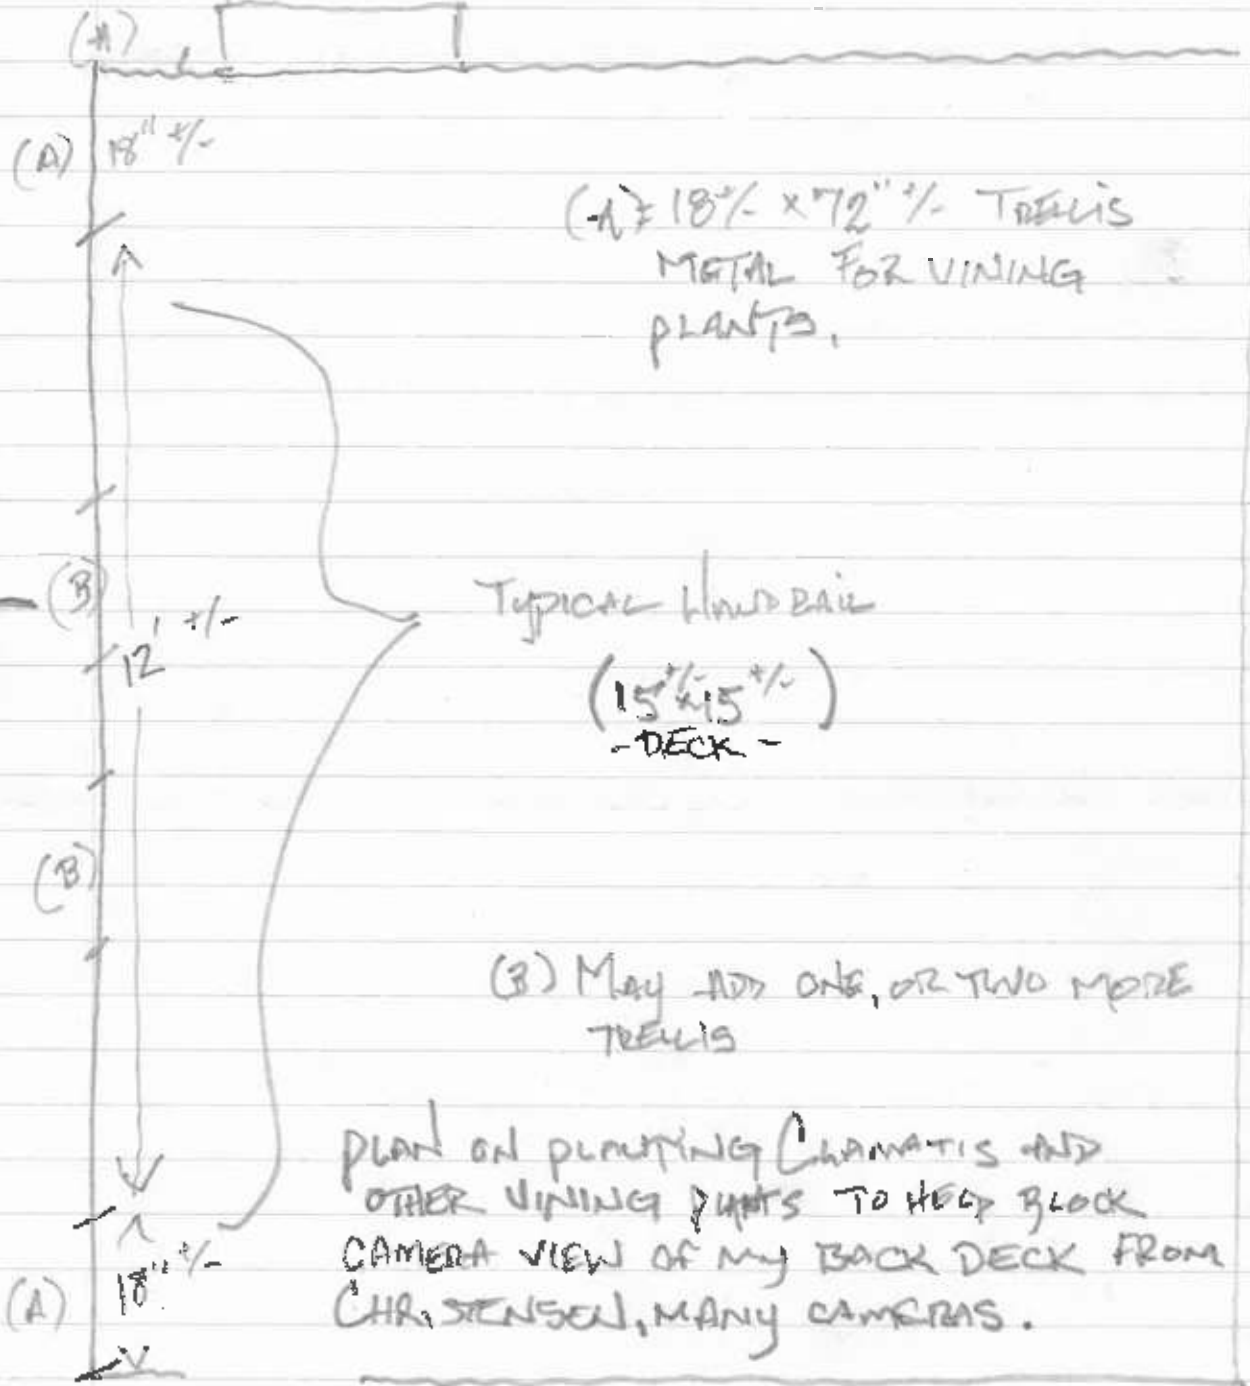 (A)
(A) 18" +/-
(A) = 18 +/- x 72" +/- TRELLIS
METAL FOR VINING
PLANTS.
(B)
12' +/-
TYPICAL HANDRAIL
(15 +/- x 15 +/-)
- DECK -
(B)
(B) MAY ADD ONE, OR TWO MORE
TRELLIS
PLAN ON PLANTING CLAMATIS AND
OTHER VINING PLANTS TO HELP BLOCK
CAMERA VIEW OF MY BACK DECK FROM
CHRISTENSEN, MANY CAMERAS.
(A) 18" +/-